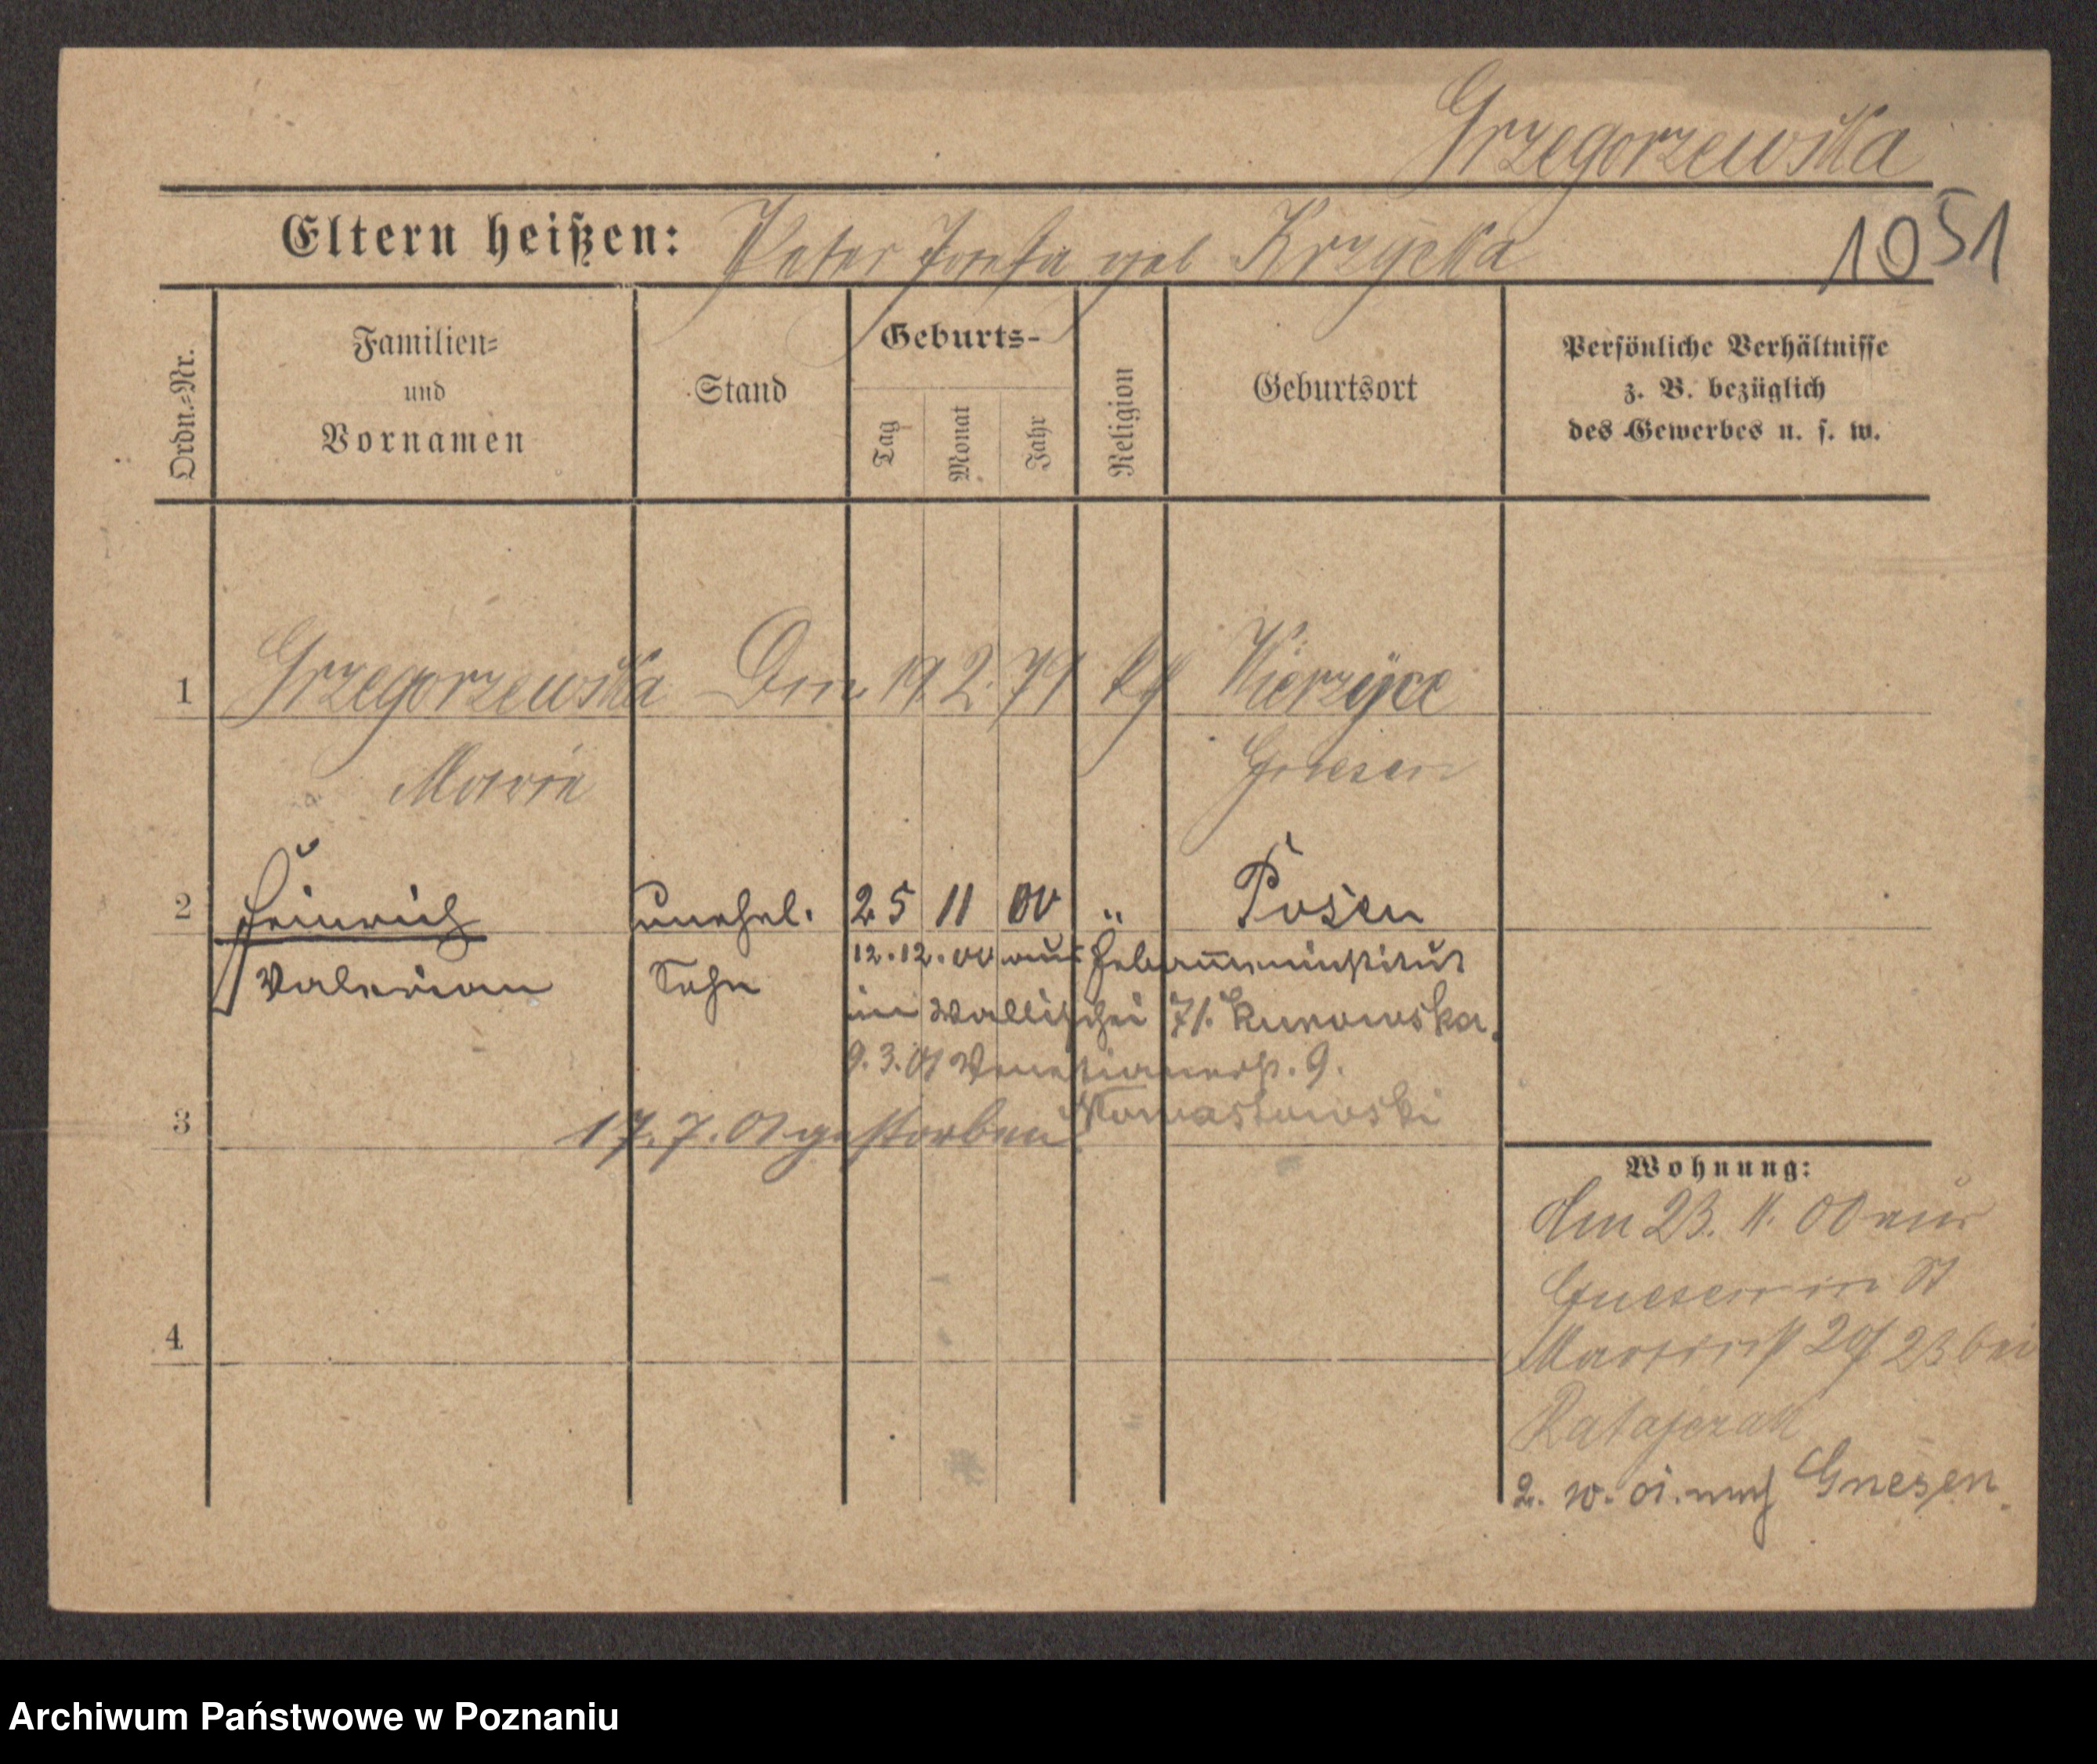 Grzegorzewska
Eltern heißen: Peter Josefa geb Krzycka
1051
Ordn.-Nr.
Familien- und Vornamen
Stand
Geburts-
Tag
Monat
Jahr
Religion
Geburtsort
Persönliche Verhältnisse
z. B. bezüglich
des Gewerbes u. s. w.
1 Grzegorzewska 2. 79 Wierzyce
Maria Gnesen
2 Heinrich unehel. 25 11 00 " Posen
Valerian Sohn
12.12.00 aus Hebammeninstitut
in Wallischei 71. Kunowska.
9.3.01 Venetianerst. 9.
3
17.7.01 gestorben
Wohnung:
Am 23. 11. 00 aus
Gnesen in St
Martinst 23 bei
Ratajczak
4
2. 10. 01. nach Gnesen.
Archiwum Państwowe w Poznaniu